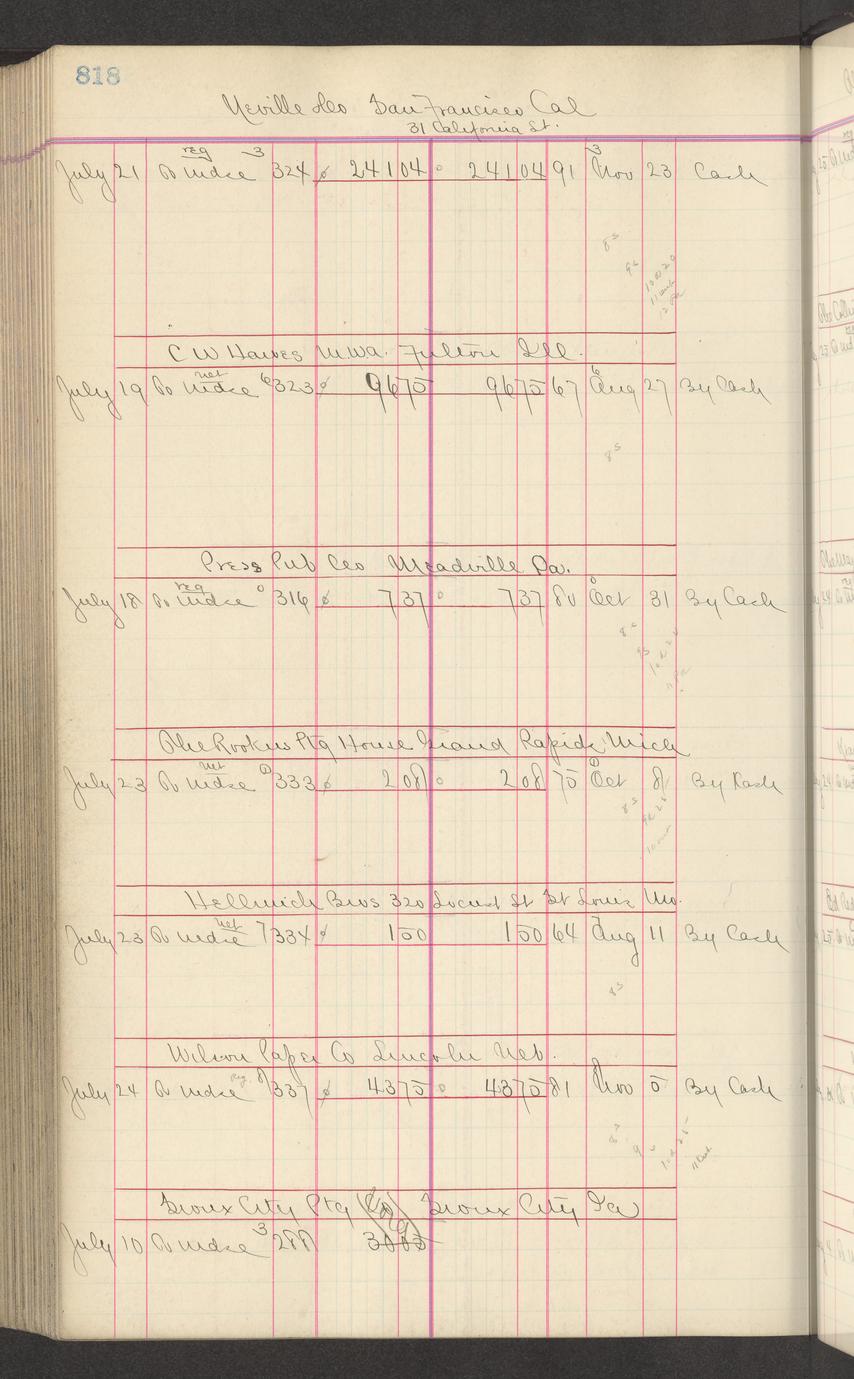 818
Neville & Co San Francisco Cal
31 California St.
reg 3 3
July 21 To Mdse 324 24104 24104 91 Nov 23 Cash
8 5
9 5
10 & 20
C W Hawes M.W.A. Fulton Ill.
net 6 6
July 19 To Mdse 323 9675 9675 67 Aug 27 By Cash
8 5
Press Pub Co Meadville Pa.
reg 0 0
July 18 To Mdse 316 737 737 80 Oct 31 By Cash
The Rookus Ptg House Grand Rapids Mich
net 0 0
July 23 To Mdse 333 208 208 75 Oct 8 By Cash
8 5
Hellmich Bros 320 Locust St St Louis Mo.
net 7 7
July 23 To Mdse 334 150 150 64 Aug 11 By Cash
8 5
Wilson Paper Co Lincoln Neb.
reg 8 8
July 24 To Mdse 337 4375 4375 81 Nov 5 By Cash
Sioux City Ptg Co Sioux City Ia
3
July 10 To Mdse 288